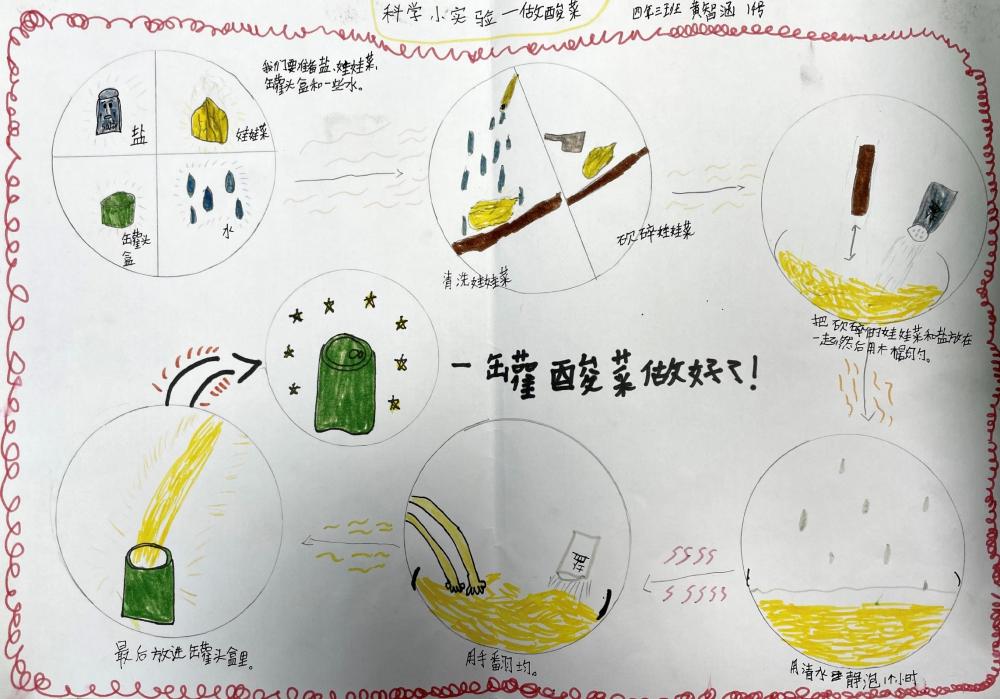 科学小实验—做酸菜
四年三班 黄智涵 14号
我们要准备盐、娃娃菜、
缶罐头盒和一些水。
盐
娃娃菜
缶罐头
盒
水
清洗娃娃菜
砍碎娃娃菜
把砍碎的娃娃菜和盐放在
一起,然后用木棍匀匀。
一缶罐酸菜做好了!
盐
最后放进缶罐头盒里。
用手翻匀。
用清水 静泡1小时